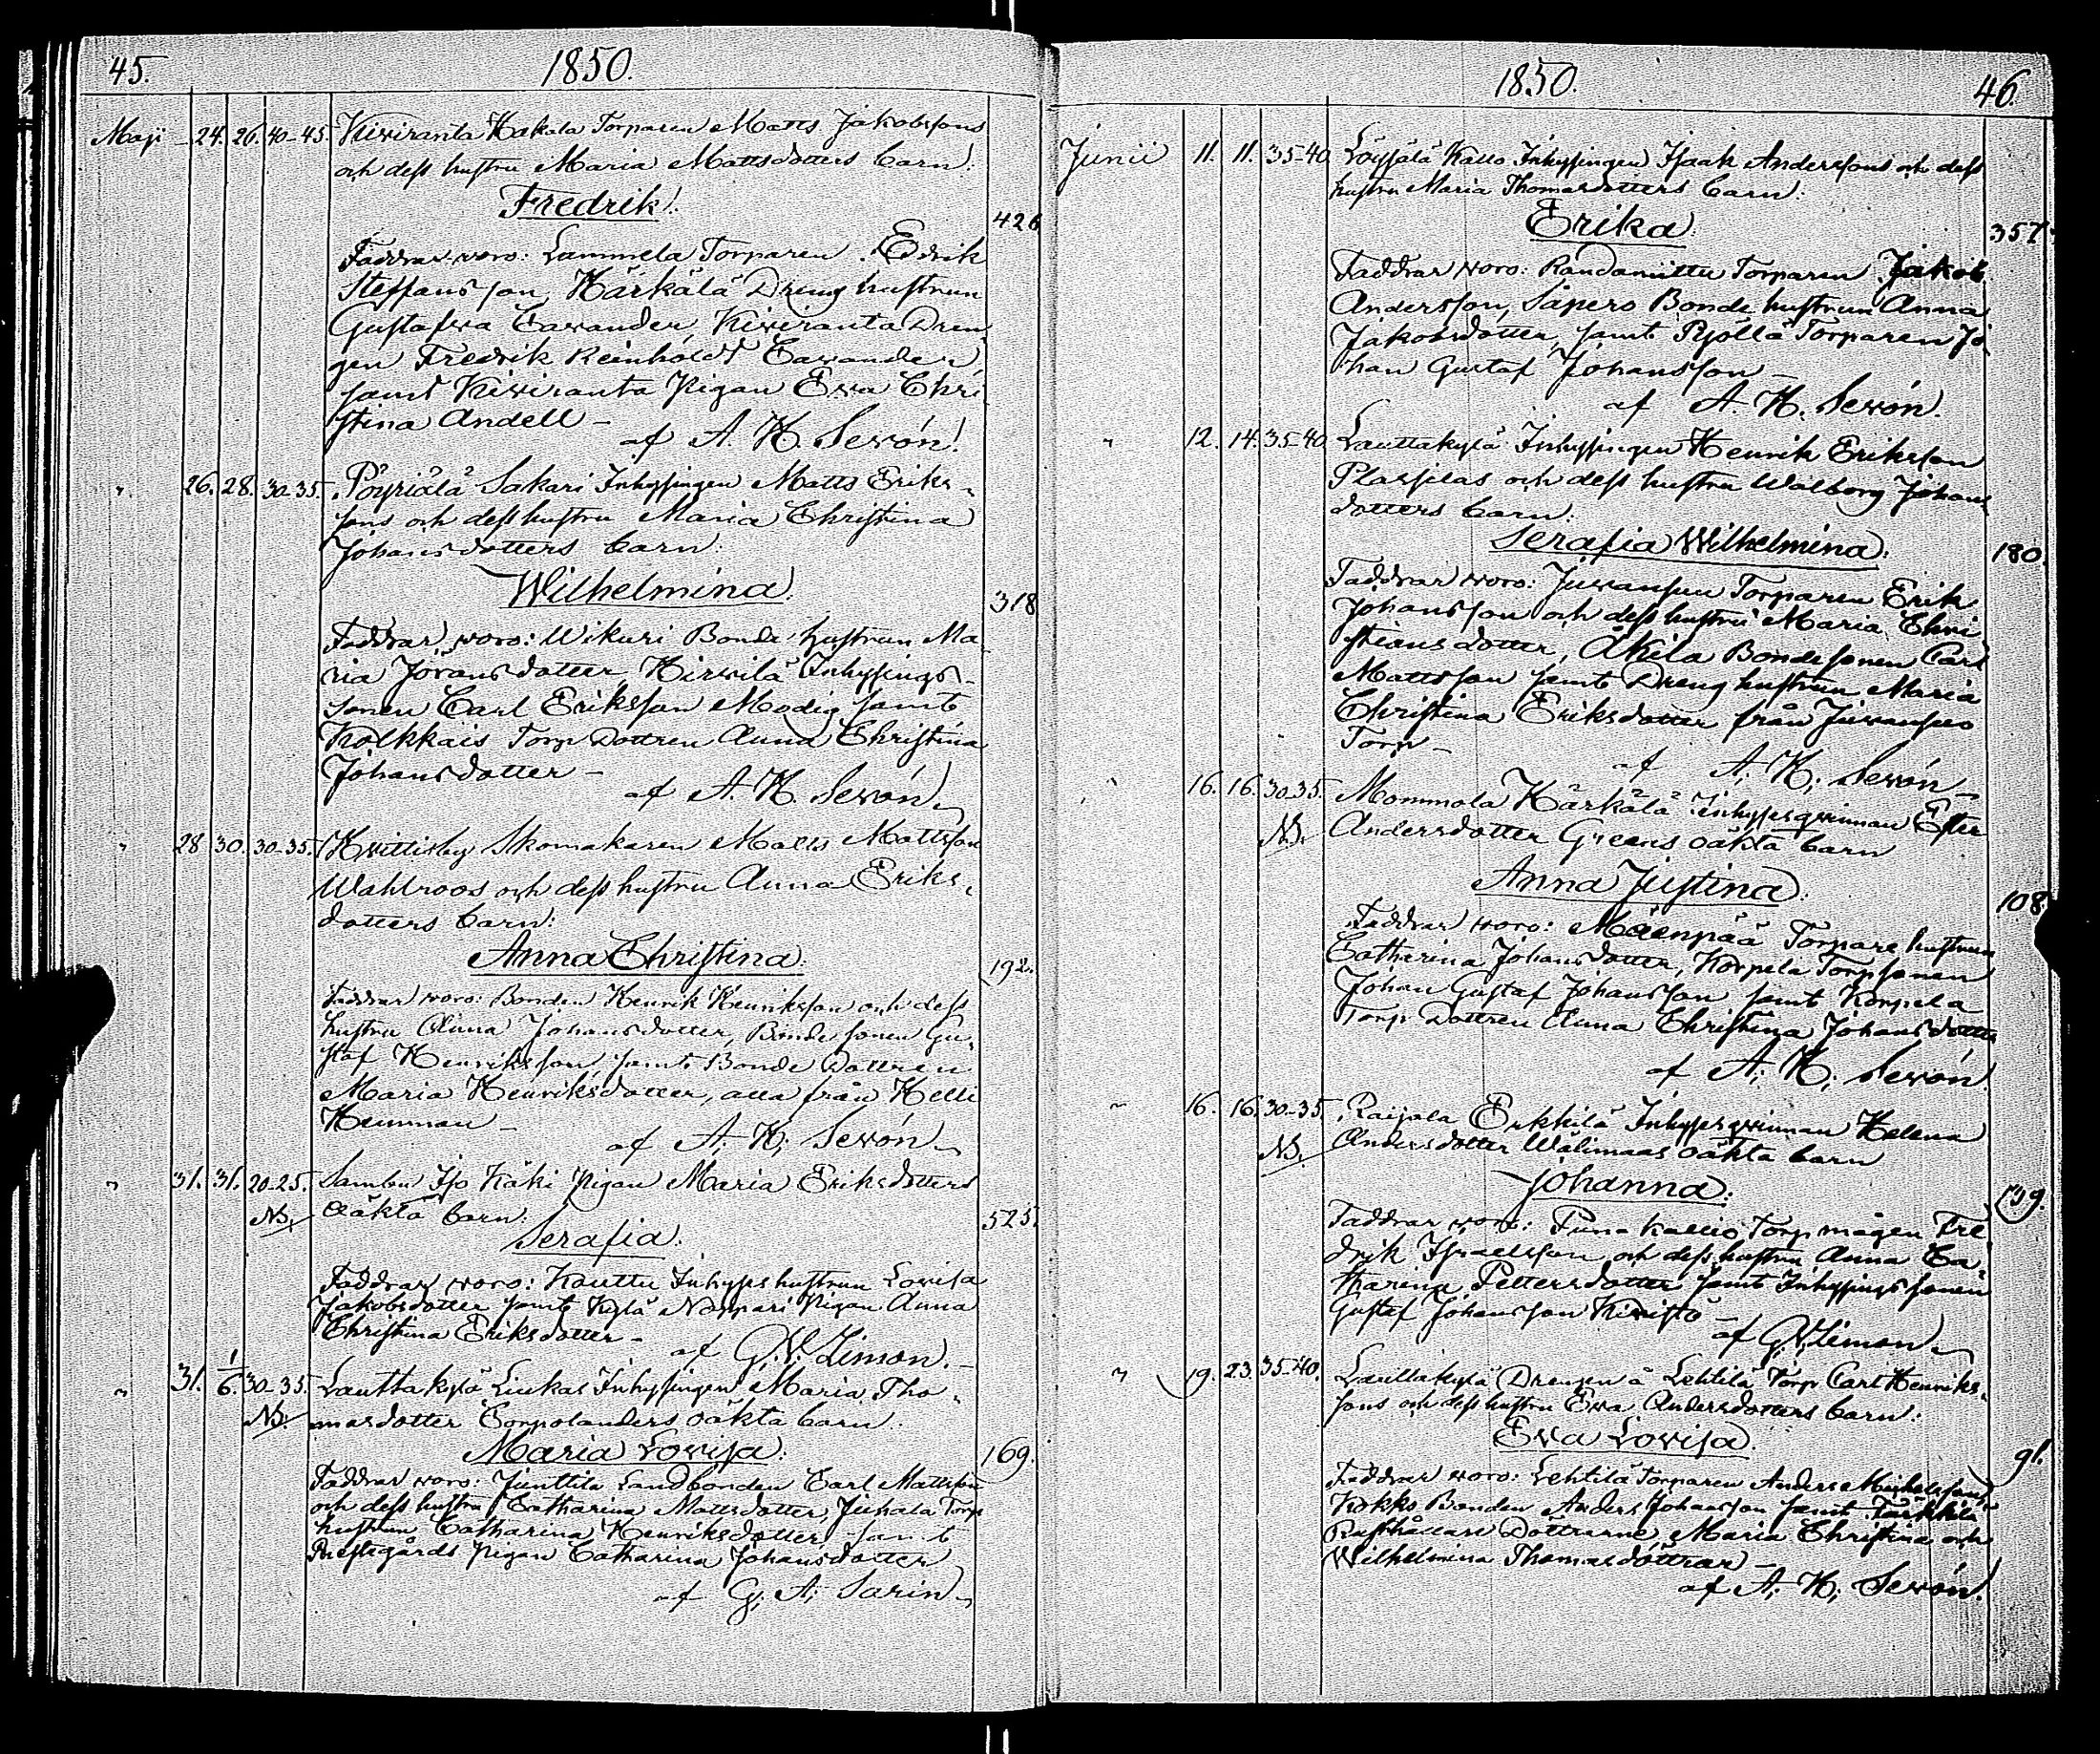 45.
1850.
Maji 24. 26. 40-45. Kiviranta Hakala Torparen Matts Jakobssons
och dess hustru Maria Mattsdotters barn:
Fredrik.
426
Faddrar woro: Lammela Torparen Edrik
Steffansson, Kärkälä Dreng hustrun
Gustafwa Cawander, Kiviranta Dren
gen Fredrik Reinholdt Cawander
samt Kiviranta Pigan Ewa Chri
stina Andell –
af A. H. Sevón.
" 26. 28. 30-35. Pöyriälä Sakari Inhysingen Matts Eriks-
sons och dess hustru Maria Christina
Johansdotters barn:
Wilhelmina.
318
Faddrar woro: Wikuri Bonde hustrun Ma
ria Jöransdotter, Hirvilä Inhysings-
sonen Carl Eriksson Modig samt
Kolkkais Torp Dottren Anna Christina
Johansdotter –
af A. H. Sevón.
" 28 30. 30-35. Hvittisby Skomakaren Matts Mattsson
Wahlroos och dess hustru Anna Eriks-
dotters barn:
Anna Christina.
192.
Faddrar woro: Bonden Henrik Henriksson och dess
hustru Anna Johansdotter, Bonde sonen Gu-
staf Henriksson, samt Bonde Dottren
Maria Henriksdotter, alla från Kelli
Hemman –
af A. H. Sevón
" 31. 31. 20-25. Sambu Iso Käki Pigan Maria Eriksdotters
NB. oäkta barn:
525.
Serafia.
Faddrar woro: Kauttu Inhyses hustrun Lovisa
Jakobsdotter samt Kylä Nappari Pigan Anna
Christina Eriksdotter –
af G. W. Limon.
" 31. 1/6. 30-35. Lauttakylä Liukas Inhysingen Maria Tho-
NB. masdotter Corpolanders oäkta barn.
Maria Lovisa.
169.
Faddrar woro: Junttila Landbonden Carl Mattsson
och dess hustru Catharina Mattsdotter, Juhala Torp
hustrun Catharina Henriksdotter samt
Prestgårds Pigan Catharina Johansdotter
af G. A. Sarin
1850.
46.
Junii 11. 11. 35-40 Löysälä Kallo Inhysingen Isaak Anderssons och dess
hustru Maria Thomasdotters barn:
Erika.
357.
Faddrar woro: Randamittu Torparen Jakob
Andersson, Säpero Bonde hustrun Anna
Jakobsdotter, samt Pyöllä Torparen Jo
han Gustaf Johansson –
af A. H. Sevón.
" 12. 14. 35-40 Lauttakylä Inhysingen Henrik Eriksson
Plassilas och dess hustru Walborg Johans
dotters barn:
Serafia Wilhelmina.
180.
Faddrar woro: Juvansuu Torparen Erik
Johansson och dess hustru Maria Chri
stiansdotter, Äkilä Bondesonen Carl
Mattsson samt Dreng hustrun Maria
Christina Eriksdotter från Juvansuu
Torp –
af A. H. Sevón
" 16. 16. 30-35. Mommola Kärkälä Inhyseqvinnan Ester
NB. Andersdotter Greens oäkta barn
Anna Justina.
108
Faddrar woro: Mäenpää Torpare hustrun
Catharina Johansdotter, Korpela Torpsonen
Johan Gustaf Johansson samt Korpela
Torp Dottren Anna Christina Johansdotter
af A. H. Sevón.
" 16. 16. 30-35. Raijala Erkkilä Inhyseqvinnan Helena
NB. Andersdotter Wälimaas oäkta barn
Johanna.
139.
Faddrar woro: Puna kallio Torp mågen Fre
drik Israelsson och dess hustru Anna Ca-
tharina Pettersdotter samt Inhysings sonen
Gustaf Johansson Kivistö –
af G. W. Limon
" 19. 23. 35-40. Lauttakylä Drengen å Lehtilä Torp Carl Henriks-
sons och dess hustru Eva Andersdotters barn:
Eva Lovisa.
91.
Faddrar woro: Lehtilä Torparen Anders Michelsson,
Kokko Bonden Anders Johansson samt Tarkkila
Rusthållare Döttrarne Maria Christina och
Wilhelmina Thomasdöttrar –
af A. H. Sevón.